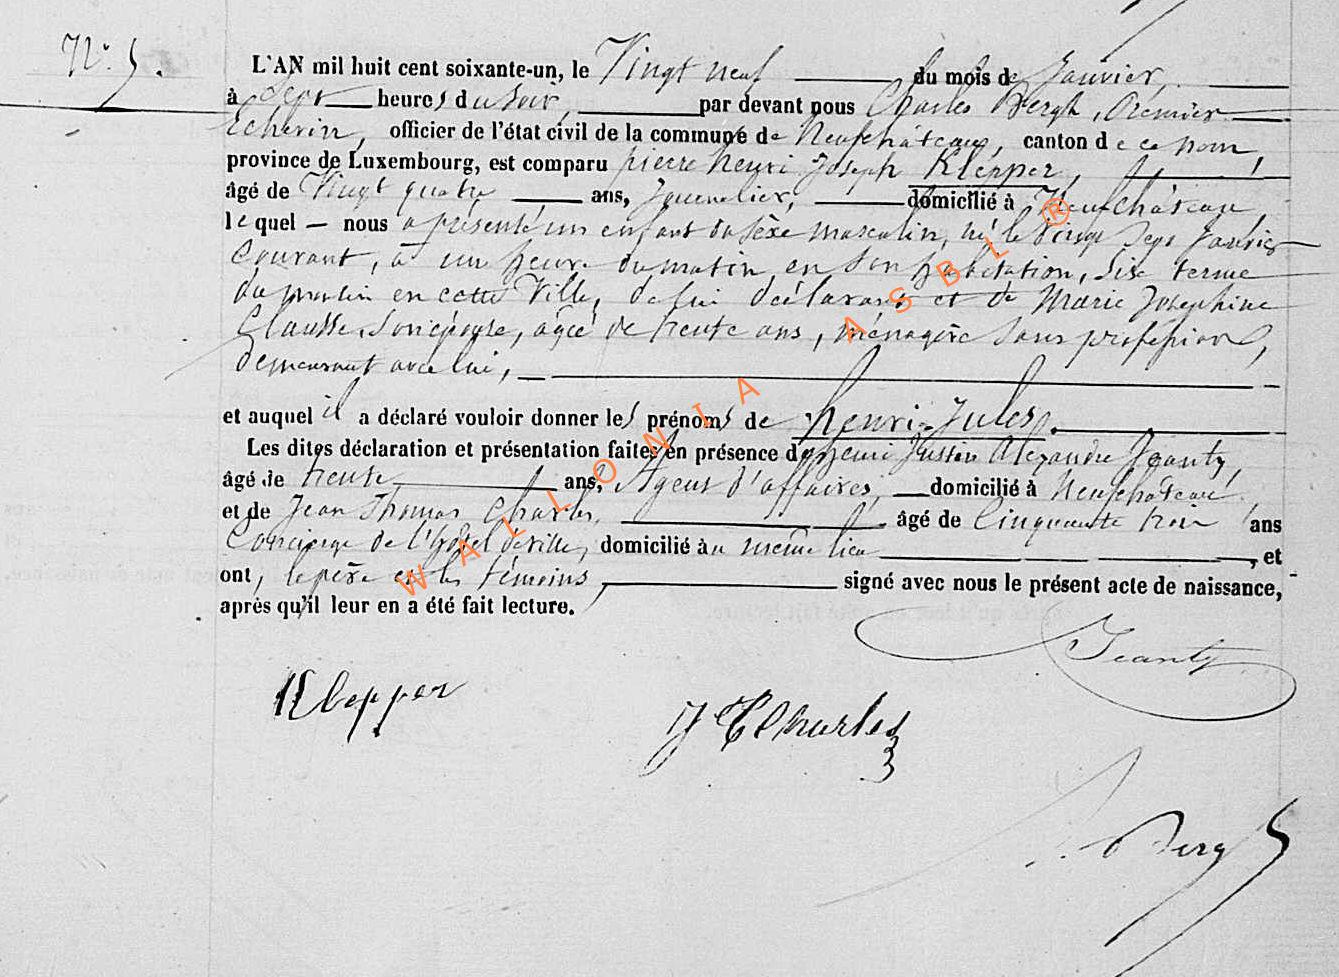 N° 5.
L'AN mil huit cent soixante-un, le Vingt neuf du mois de Janvier,
à Sept heures du Soir, par devant nous Charles Bergh, Premier
Echevin, officier de l'état civil de la commune de Neufchâteau, canton de ce nom,
province de Luxembourg, est comparu pierre henri Joseph Klepper,
âgé de Vingt quatre ans, Journalier, domicilié à Neufchâteau,
lequel nous a présenté un enfant du sèxe masculin, né le Vingt Sept Janvier
Courant, à un heure du matin, en Son habitation, Sise terme
du moulin en cette Ville, de lui déclarant et de Marie Josephine
Claudde, Son épouse, agée de trente ans, ménagère Sans profession,
demeurant avec lui,
et auquel il a déclaré vouloir donner les prénoms de henri-Jules.
Les dites déclaration et présentation faites en présence de henri Justin Alexandre Jeanty,
âgé de trente ans, Agent d'affaires, domicilié à Neufchâteau
et de Jean Thomas Charles, âgé de Cinquante trois ans
Concierge de l'hôtel de ville, domicilié au même lieu, et
ont, le père et les témoins, signé avec nous le présent acte de naissance,
après qu'il leur en a été fait lecture.
Jeanty
Klepper
J T Charles
Bergh
WALLONIA ASBL ®